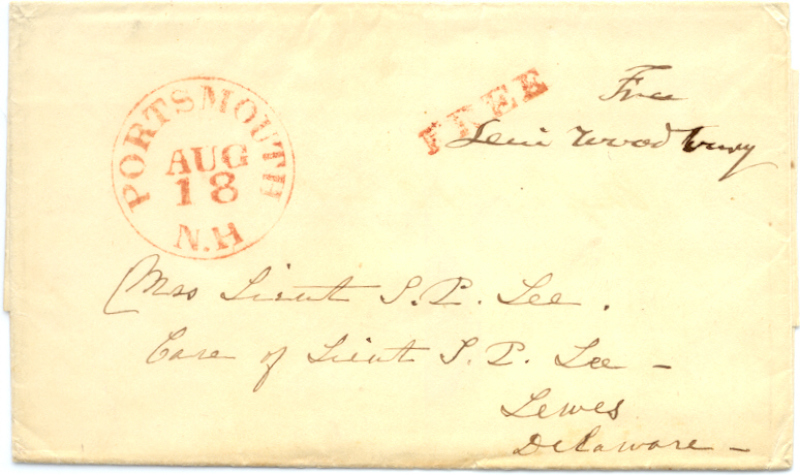 PORTSMOUTH
AUG
18
N.H
FREE
Free
Levi Woodbury
Mrs Lieut S. P. Lee.
Care of Lieut S. P. Lee –
Lewes
Delaware –